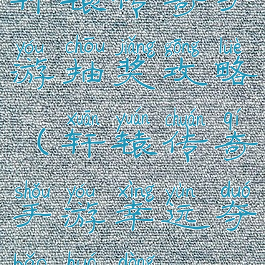 yóu chōu jiǎng gōng lüè
游抽奖攻略
xuān yuán chuán qí
（轩辕传奇
shǒu yóu xìng yùn duó
手游幸运夺